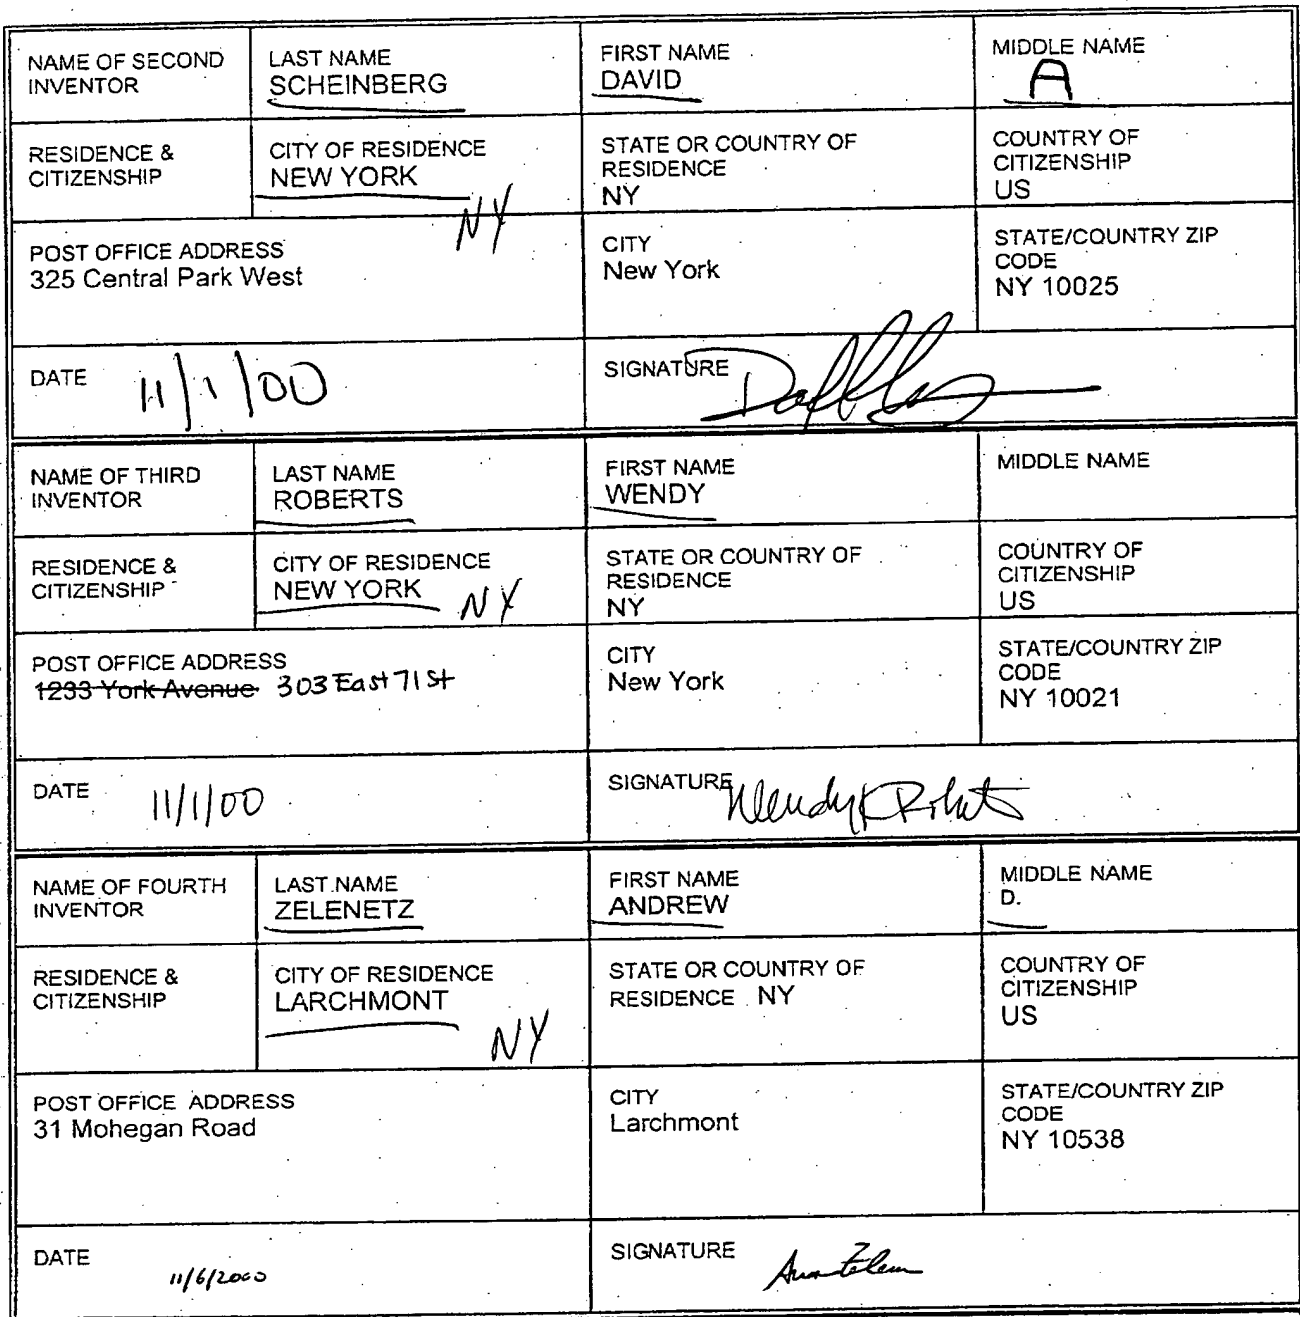 NAME OF SECOND INVENTOR
LAST NAME
SCHEINBERG
FIRST NAME
DAVID
MIDDLE NAME
A
RESIDENCE &
CITIZENSHIP
CITY OF RESIDENCE
NEW YORK
NY
STATE OR COUNTRY OF
RESIDENCE
NY
COUNTRY OF
CITIZENSHIP
US
POST OFFICE ADDRESS
325 Central Park West
CITY
New York
STATE/COUNTRY ZIP
CODE
NY 10025
DATE 11/1/00
SIGNATURE
NAME OF THIRD
INVENTOR
LAST NAME
ROBERTS
FIRST NAME
WENDY
MIDDLE NAME
RESIDENCE &
CITIZENSHIP
CITY OF RESIDENCE
NEW YORK
NY
STATE OR COUNTRY OF
RESIDENCE
NY
COUNTRY OF
CITIZENSHIP
US
POST OFFICE ADDRESS
1233 York Avenue 303 East 71 St
CITY
New York
STATE/COUNTRY ZIP
CODE
NY 10021
DATE 11/1/00
SIGNATURE Wendy K Roberts
NAME OF FOURTH
INVENTOR
LAST NAME
ZELENETZ
FIRST NAME
ANDREW
MIDDLE NAME
D.
RESIDENCE &
CITIZENSHIP
CITY OF RESIDENCE
LARCHMONT
NY
STATE OR COUNTRY OF
RESIDENCE NY
COUNTRY OF
CITIZENSHIP
US
POST OFFICE ADDRESS
31 Mohegan Road
CITY
Larchmont
STATE/COUNTRY ZIP
CODE
NY 10538
DATE 11/6/2000
SIGNATURE